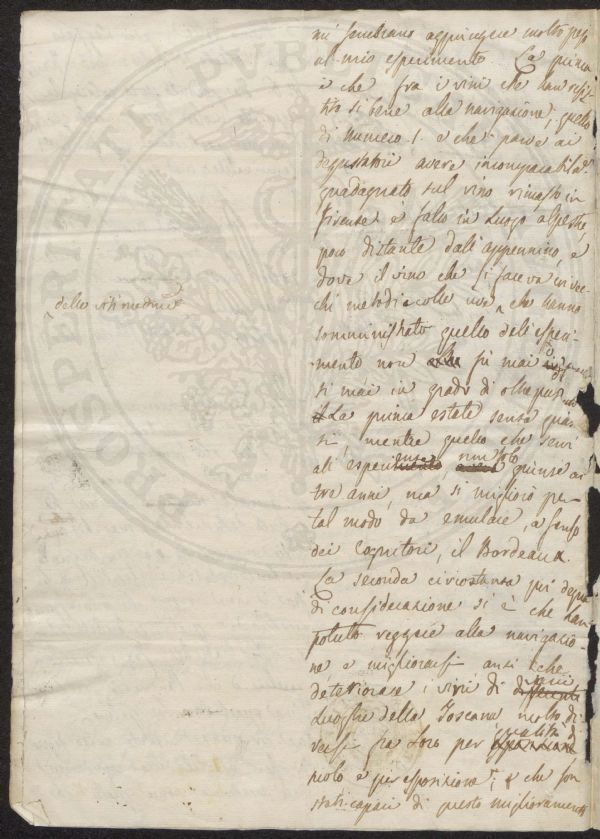 mi sembrano aggiungere molto peso
al mio esperimento. La prima
è che fra i vini che han resi-
stito sì bene alla navigazione, quello
di numero 1. e che parve ai
degustatori avere incomparabilm.e
guadagnato sul vino rimasto in
Firenze è fatto in luogo alpestre,
poco distante dall'appennino, e
dove il vino che si faceva in vec-
chi metodi e colle uve che hanno
delle viti medesime
somministrato quello dell'esperi-
mento non fù mai
si mai in grado di oltrepas
La prima estate senza guas
si, mentre quello che servì
all'esperimento giunse ai
tre anni, ma si migliorò per
tal modo da emulare, a senso
dei Cognitori, il Bordeaux.
La seconda circostanza più degna
di considerazione si è che han
potuto reggere alla navigazio-
ne e migliorarsi anzi che
deteriorare i vini di varii
Luoghi della Toscana molto di
versi fra loro per qualità di
suolo e per esposizione; e che son
stati capaci di questo miglioramento
PROSPERITATI PVBL